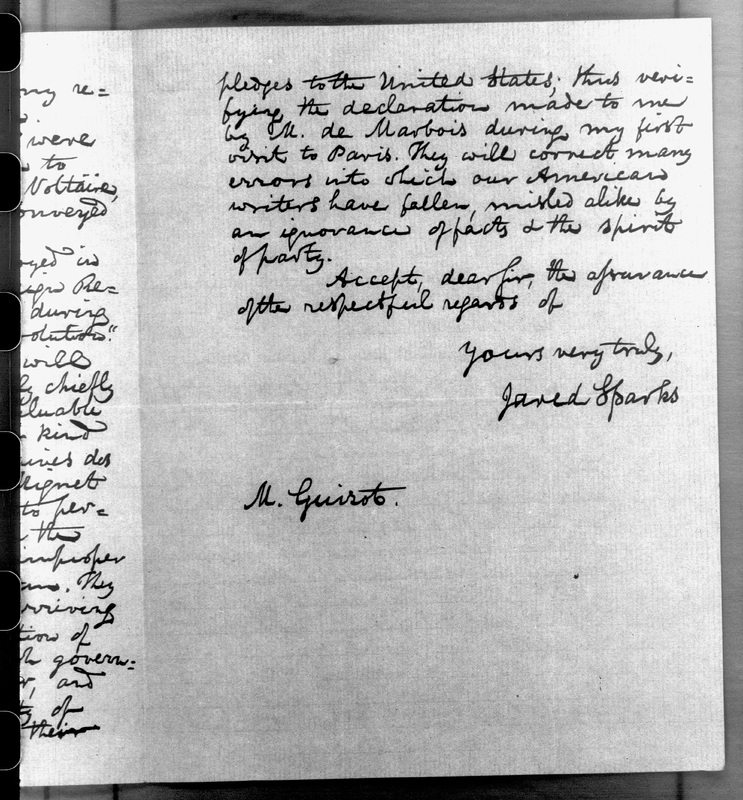 my re=
were
to
Voltaire,
onveyed
oyed in
eign Re=
during
olution."
will
ly chiefly
luable
kind
ives des
Mignet
to per=
the
improper
They
rriving
tion of
govern=
and
of
their
pledges to the United States; thus veri=
fying the declaration made to me
by M. de Marbois during my first
visit to Paris. They will correct many
errors into which our American
writers have fallen, misled alike by
an ignorance of facts & the spirit
of party.
Accept, dear Sir, the assurance
of the respectful regards of
Yours very truly,
Jared Sparks
M. Guizot.